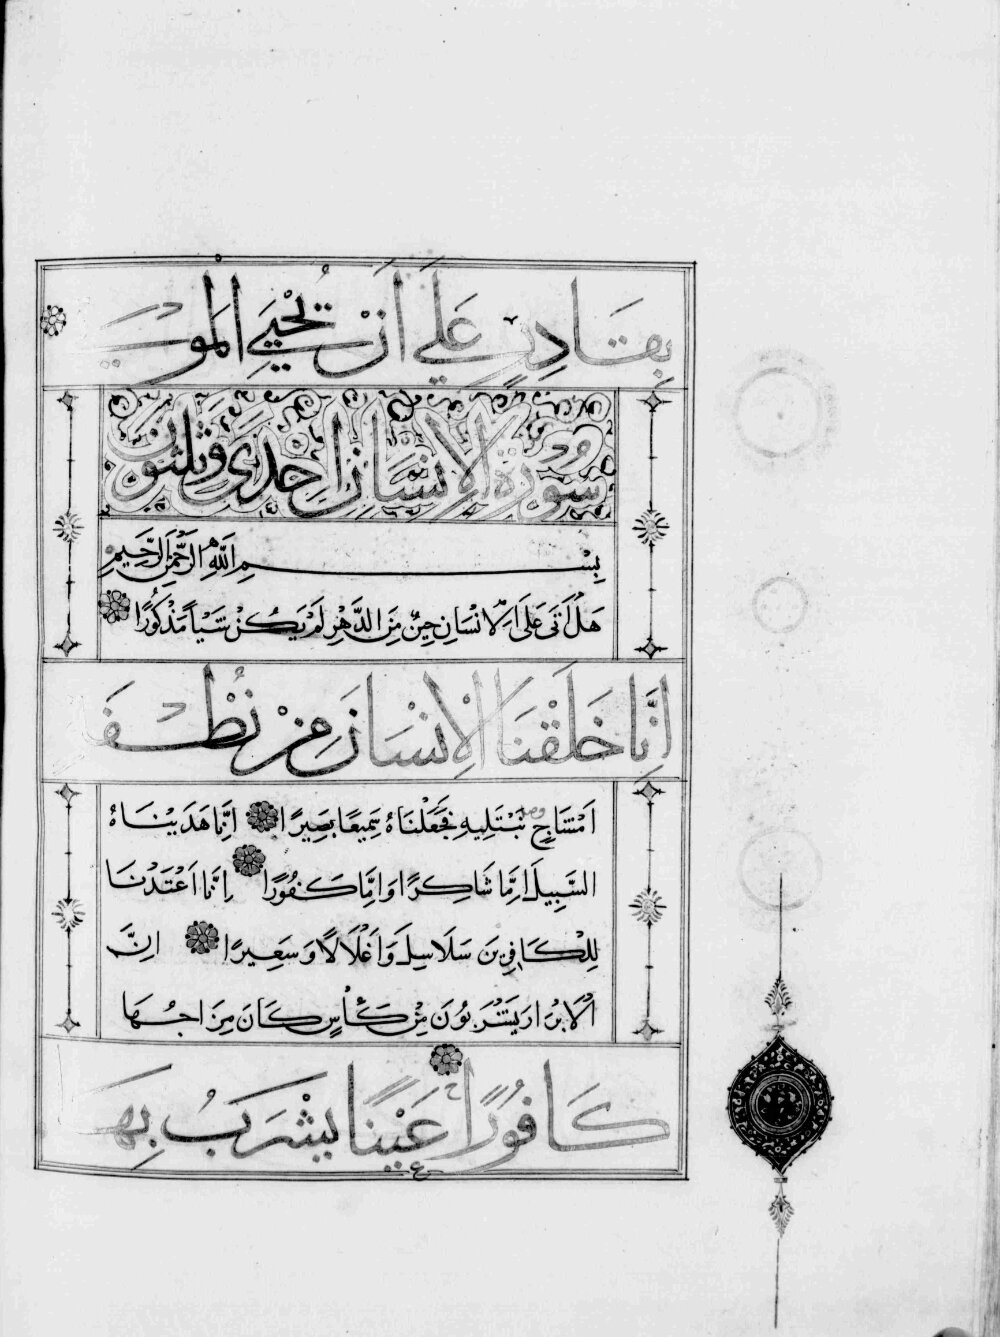 بِقَادِرٍ عَلَى أَنْ يُحْيِيَ الْمَوْتَى
سورة الإنسان احدى وثلثون
بِسْمِ اللَّهِ الرَّحْمَنِ الرَّحِيمِ
هَلْ أَتَى عَلَى الْإِنْسَانِ حِينٌ مِنَ الدَّهْرِ لَمْ يَكُنْ شَيْئًا مَذْكُورًا
إِنَّا خَلَقْنَا الْإِنْسَانَ مِنْ نُطْفَةٍ
أَمْشَاجٍ نَبْتَلِيهِ فَجَعَلْنَاهُ سَمِيعًا بَصِيرًا إِنَّا هَدَيْنَاهُ
السَّبِيلَ إِمَّا شَاكِرًا وَإِمَّا كَفُورًا إِنَّا أَعْتَدْنَا
لِلْكَافِرِينَ سَلَاسِلَ وَأَغْلَالًا وَسَعِيرًا إِنَّ
الْأَبْرَارَ يَشْرَبُونَ مِنْ كَأْسٍ كَانَ مِزَاجُهَا
كَافُورًا عَيْنًا يَشْرَبُ بِهَا